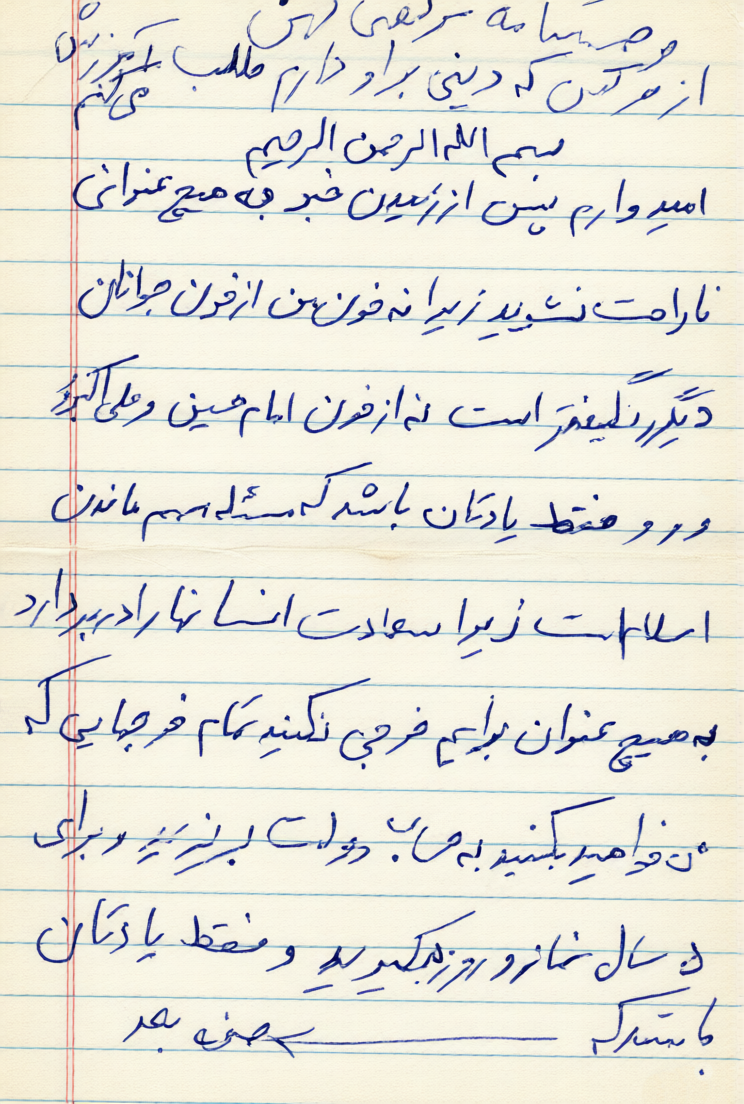 وصیتنامه مرتضی
از هر کس که دینی بر او دارم طلب آمرزش می‌کنم
بسم الله الرحمن الرحیم
امیدوارم پس از رسیدن خبر به هیچ عنوانی
ناراحت نشوید زیرا نه خون من از خون جوانان
دیگر رنگینتر است نه از خون امام حسین و علی اکبر
و فقط یادتان باشد که مسئله مهم ماندن
اسلام است زیرا سعادت انسانها را در بر دارد
به هیچ عنوان برایم خرجی نکنید تمام خرجهایی که
می‌خواهید بکنید به حساب دولت بریزید و برای
سال نماز و روزه بگیرید و فقط یادتان
باشد که صفحه بعد